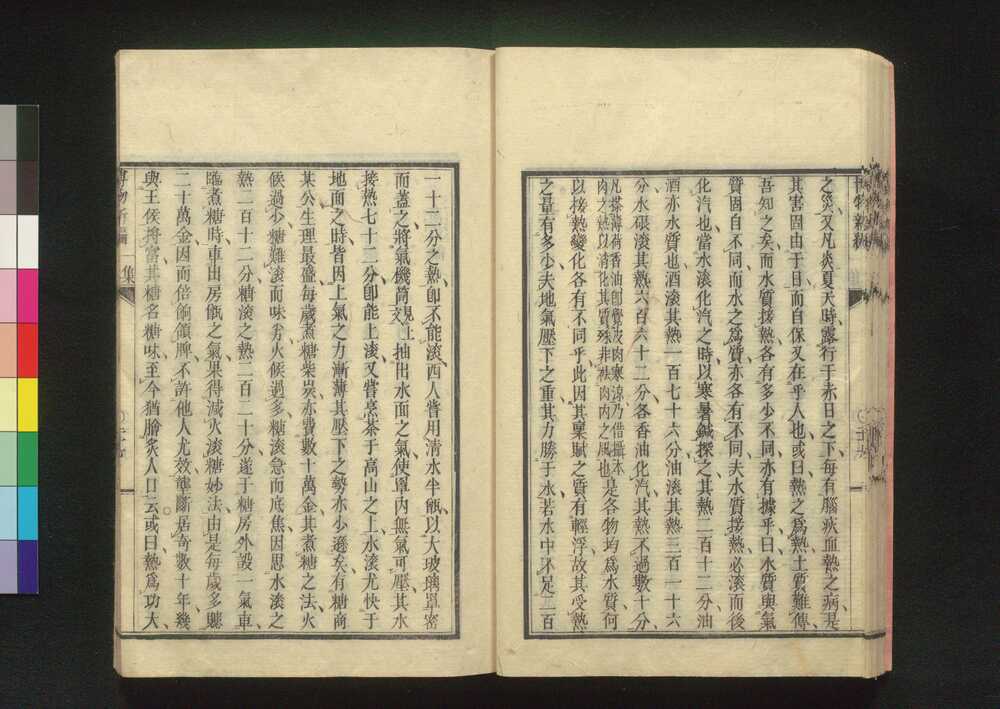 之災又凡炎夏天時露行于赤日之下每有腦疾血熱之病是
其害固由于日而自保又在乎人也或曰熱之為熱土質難傳
吾知之矣而水質接熱各有多少不同亦有據乎曰水質與氣
質固自不同而水之為質亦各有不同夫水質接熱必滾而後
化汽也當水滾化汽之時以寒暑鍼探之其熱二百十二分油
酒亦水質也酒滾其熱一百七十六分油滾其熱三百一十六
分水銀滾其熱六百六十二分各香油化汽其熱不過數十分
凡搽薄荷香油卽覺皮肉寒涼乃借攝本
肉之熱以消化其質殊非袪肉內之風也
是各物均為水質何
以接熱變化各有不同乎此因其稟賦之質有輕浮故其受熱
之量有多少夫地氣壓下之重其力勝于水若水中不足二百
一十二分之熱卽不能滾西人嘗用清水半甑以大玻璃罩密
而蓋之將氣機筒
抽出水面之氣使罩內無氣可壓其水
接熱七十二分卽能上滾又嘗烹茶于高山之上水滾尤快于
地面之時皆因上氣之力漸薄其壓下之勢亦少遜矣有糖商
某公生理最盛每歲煮糖柴炭亦費數十萬金其煮糖之法火
候過少糖難滾而味劣火候過多糖滾急而底焦因思水滾之
熱二百十二分糖滾之熱二百二十分遂于糖房外設一氣車
臨煮糖時車出房甑之氣果得減火滾糖妙法由是每歲多賺
二十萬金因而倍餉領牌不許他人尤效壟斷居奇數十年幾
與王侯將富其糖名糖味至今猶膾炙人口云或曰熱為功大
博物新編
一集